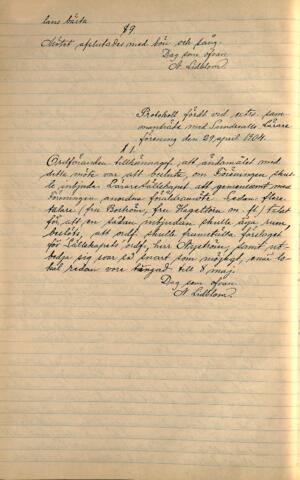 lans bästa
§9
Mötet afslutades med bön och sång.
Dag som ofvan
A. Lidblom.
Protokoll fördt vid extra sam-
manträde med Sundsvalls Lärare
förening den 29 april 1904.
§ 1.
Ordföranden tillkännagaf, att ändamålet med
detta möte var att besluta, om Föreningen skul-
le inbjuda Läraresällskapet att gemensamt med
föreningen anordna föräldramöte. Sedan flere
talare (fru Boström, fru Hägglton m. fl.) talat
för att en sådan inbjudan skulle äga rum,
beslöts, att ordf. skulle framställa förslaget
för Sällskapets ordf., herr Ångström, samt ut-
bedja sig svar så snart som möjligt, enär lo-
kal redan vore tingad till 8 maj.
Dag som ofvan
A. Lidblom.